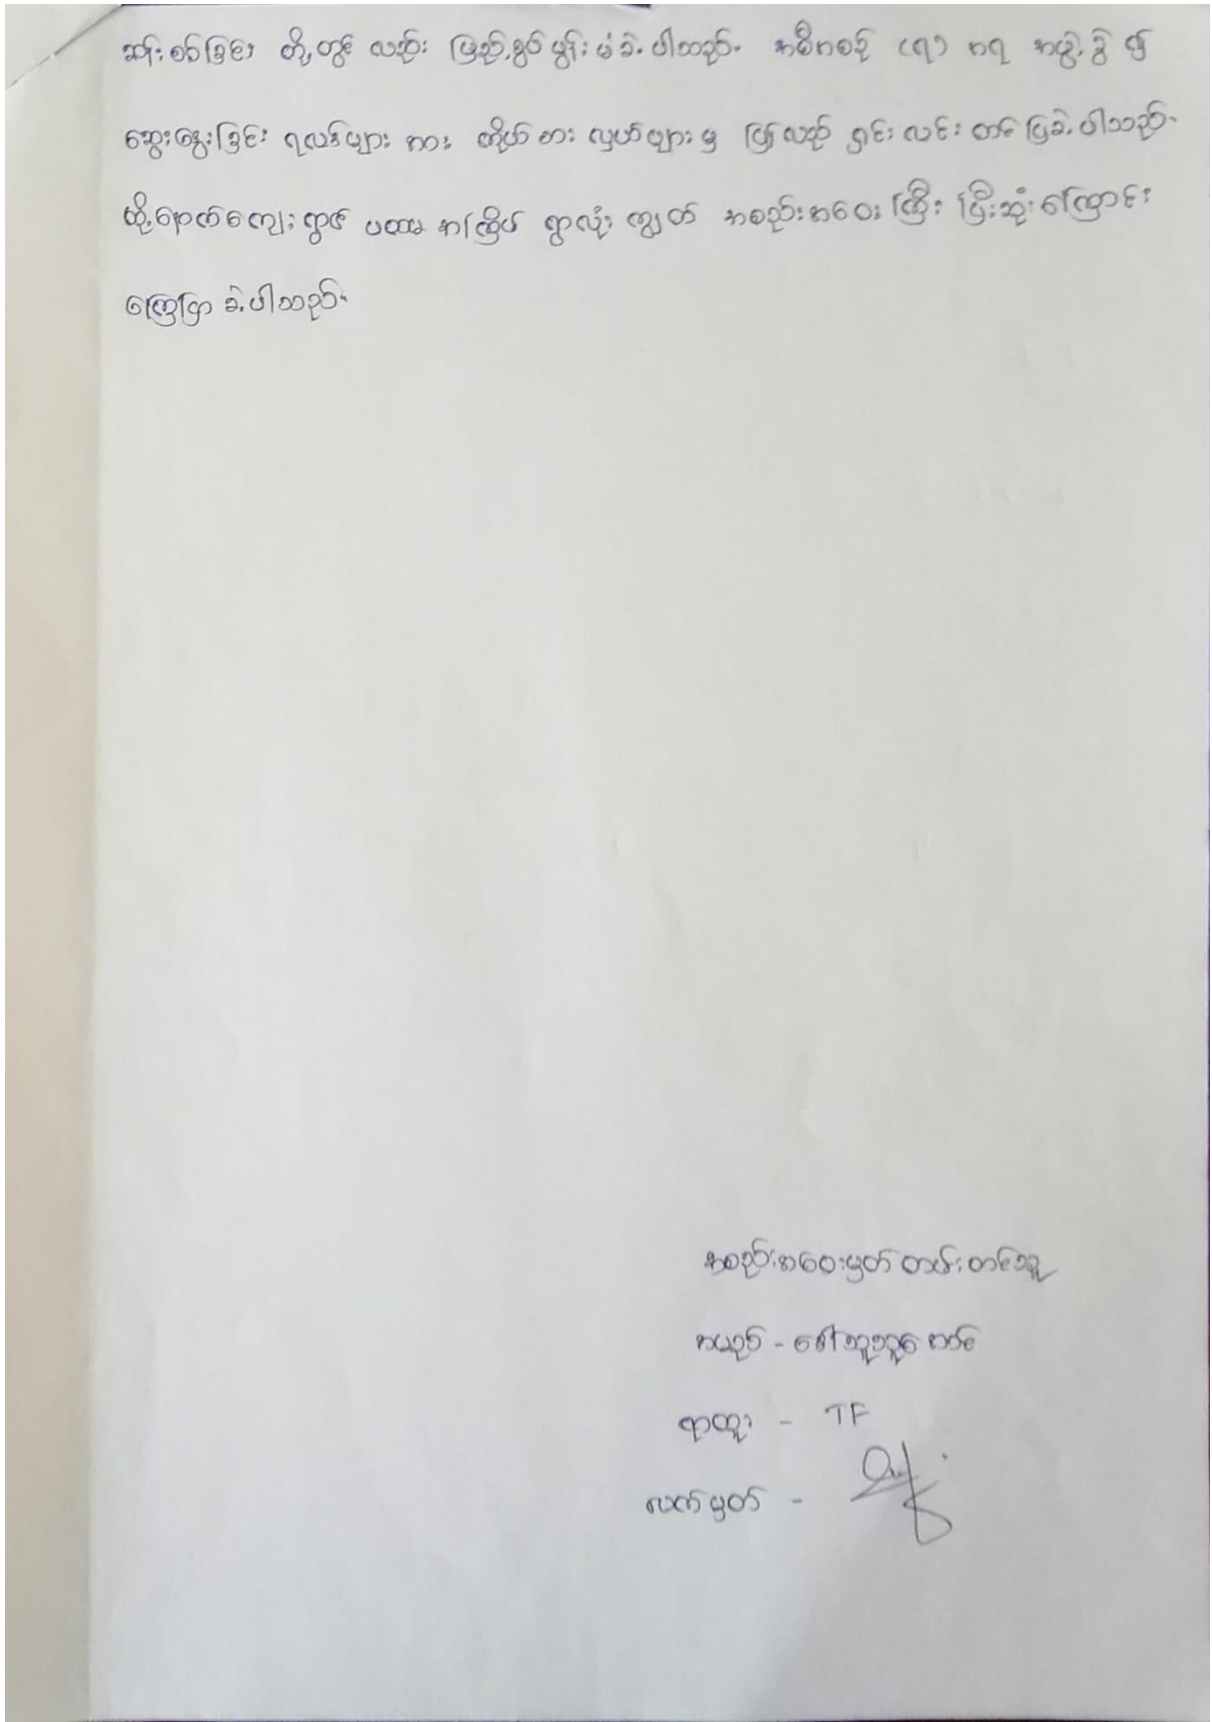 ဆန်းစစ်ခြင်း တို့တွင် လည်း ဖြည့်စွပ်မွန်းမံခဲ့ပါသည်။ အစီအစဉ် (၇) အရ အဖွဲ့ခွဲ ၍
ဆွေးနွေးခြင်း ရလဒ်များ အား ကိုယ်စား လှယ်များ မှ ပြန်လည် ရှင်းလင်း တင်ပြခဲ့ပါသည်။
ထို့နောက်ကျေးရွာ၏ ပထမ အကြိမ် ရွာလုံး ကျွတ် အစည်းအဝေး ကြီး ပြီးဆုံးကြောင်း
ကြေငြာ ခဲ့ပါသည်။
အစည်းအဝေးမှတ်တမ်းတင်သူ
အမည် - ဒေါ်သူသူ
ရာထူး - TF
လက်မှတ် -